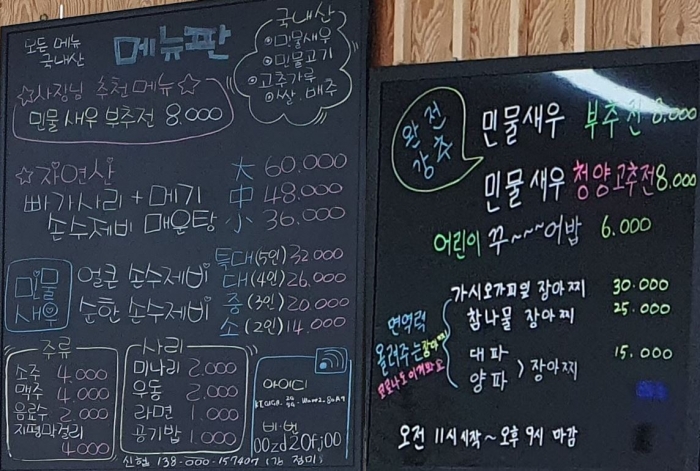 모든 메뉴
국내산
메뉴판
국내산
민물새우
민물고기
고추가루
쌀, 배추
☆사장님 추천 메뉴☆
민물새우 부추전 8.000
☆자연산
빠가사리 + 메기
손수제비 매운탕
大 60.000
中 48.000
小 36.000
민물
새우
얼큰 손수제비
순한 손수제비
특대(5인) 32.000
대(4인) 26.000
중(3인) 20.000
소(2인) 14.000
주류
소주 4.000
맥주 4.000
음료수 2.000
지평막걸리
4000
사리
미나리 2.000
우동 2.000
라면 1.000
공기밥 1.000
아이디
비번
00zd20fj00
신협 138-000-157407
완전
강추
민물새우 부추전 8.000
민물새우 청양고추전 8.000
어린이 꾸~~~어밥 6.000
면역력
올려주는 장아찌
코로나도 이겨봐요
가시오가피잎 장아찌 30.000
참나물 장아찌 25.000
대파
양파 > 장아찌 15.000
오전 11시 시작 ~ 오후 9시 마감